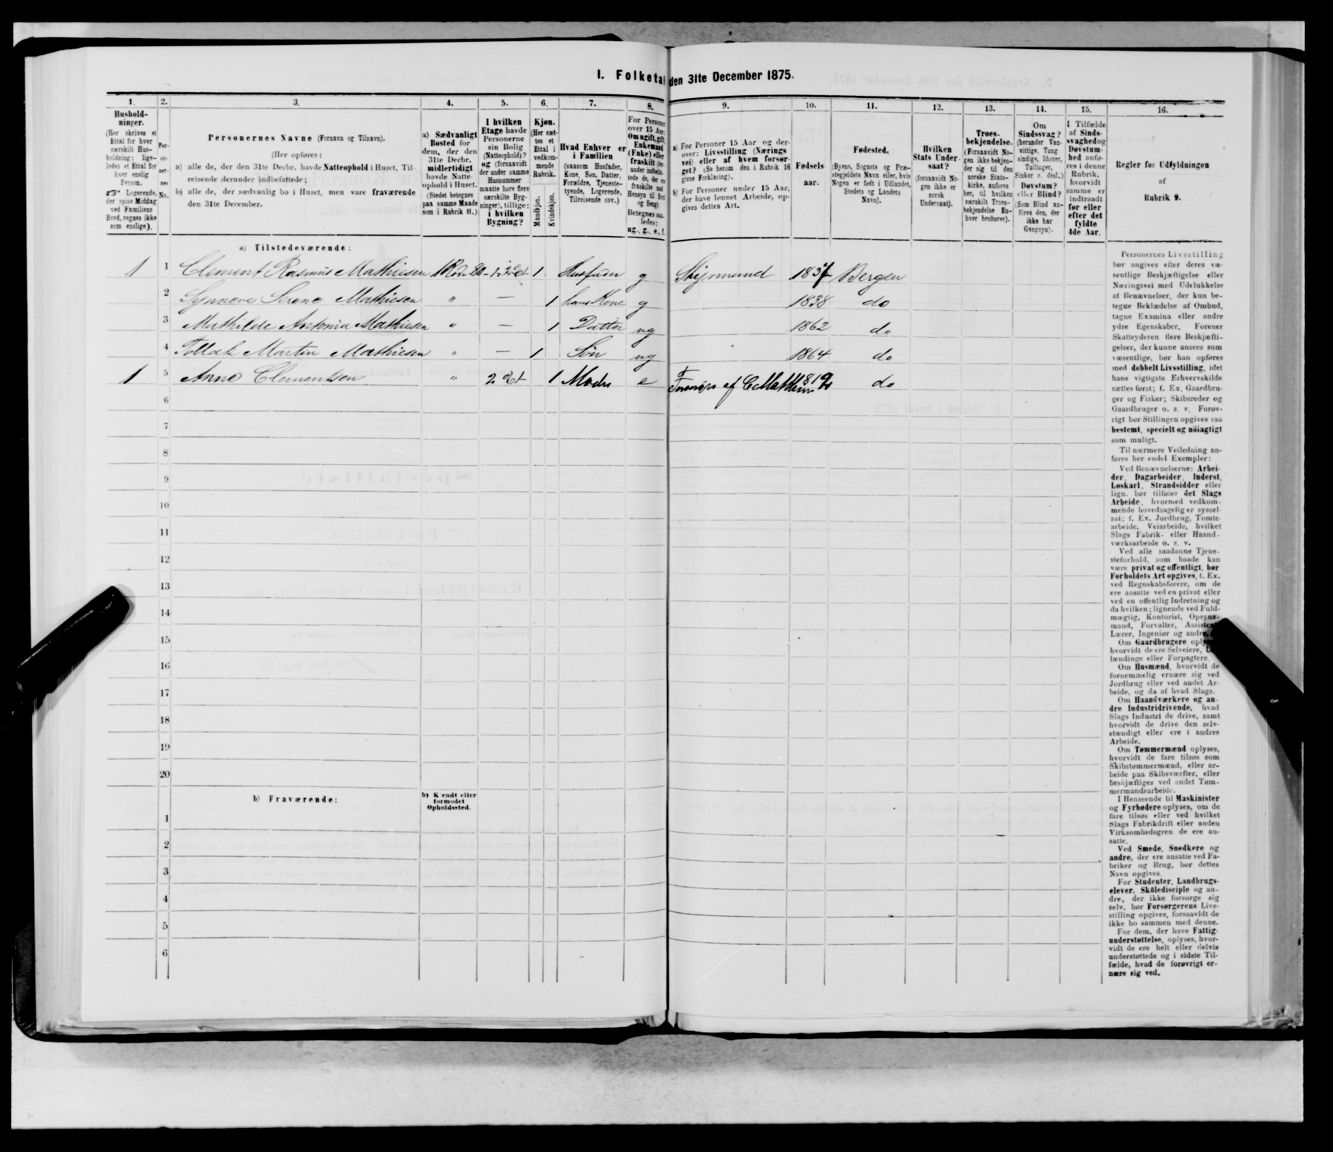 I. Folketal den 31te December 1875.
1. 2. 3. 4. 5. 6. 7. 8. 9. 10. 11. 12. 13. 14. 15. 16.
Hushold-
ninger.
(Her skrives et
Ettal for hver
særskilt Hus-
holdning; lige-
ledes et Ettal for
hver enslig
Person.
Logerende,
der spise Middag
ved Familiens
Bord, regnes ikke
som enslige).
Per-
so-
ner-
nes
No.
Personernes Navne (Fornavn og Tilnavn).
(Her opføres:
a) alle de, der den 31te Decbr. havde Natteophold i Huset, Til-
reisende derunder indbefattede;
b) alle de, der sædvanlig bo i Huset, men vare fraværende
den 31te December.
a) Sædvanligt
Bosted for
dem, der den
31te Decbr.
midlertidigt
havde Natte-
ophold i Huset.
(Stedet betegnes
paa samme Maade
som i Rubrik 11.)
I hvilken
Etage havde
Personerne
sin Bolig
(Natteophold)?
og (forsaavidt
der under samme
Husnummer
maatte høre flere
særskilte Byg-
ninger), tillige:
i hvilken
Bygning?
Kjøn.
(Her sæt-
tes et
Ettal i
vedkom-
mende
Rubrik.
Mandkjøn.
Kvindekjøn.
Hvad Enhver er
i Familien
(saasom Husfader,
Kone, Søn, Datter,
Forældre, Tjeneste-
tyende, Logerende,
Tilreisende osv.)
For Personer
over 15 Aar:
Om ugift, gift,
Enkemand
(Enke) eller
fraskilt
Betegnes saa-
ledes:
ug., g., e., f.
a) For Personer 15 Aar og der-
over: Livsstilling (Nærings-
vei) eller af hvem forsør-
get? (Se herom den i Rubrik 16
givne Forklaring).
b) For Personer under 15 Aar,
der have lønnet Arbeide, op-
gives dettes Art.
Fødsels
aar.
Fødested.
(Byens, Sognets og Præ-
stegjeldets Navn eller, hvis
Nogen er født i Udlandet,
Stedets og Landets
Navn).
Hvilken
Stats Under-
saat?
(forsaavidt No-
gen ikke er
norsk
Undersaat).
Troes-
bekjendelse.
(Forsaavidt No-
gen ikke bekjen-
der sig til den
norske Stats-
kirke, anføres
her, til hvilken
særskilt Troes-
bekjendelse En-
hver henhører).
Om
Sindssvag?
(herunder Van-
vittige, Tung-
sindige, Idioter,
Tullinger,
Sinker o. desl.)
Døvstum?
eller Blind?
(Som Blind an-
føres den, der
ikke har
Gangsyn).
I Tilfælde
af Sinds-
svaghed og
Døvstum-
hed anfø-
res i denne
Rubrik,
hvorvidt
samme er
indtraadt
før eller
efter det
fyldte
4de Aar.
Regler for Udfyldningen
af
Rubrik 9.
a) Tilstedeværende:
1 1 Clement Rasmus Mathiesen 1 Husfader g Styrmand Bergen
2 Serene Mathiesen " — 1 hans Kone g 1838 do
3 Mathilde Antonia Mathiesen " — 1 Datter ug 1862 do
4 Tollak Martin Mathiesen " — 1 Søn ug 1864 do
1 5 Anne Clementsen " 2 Et 1 Moder e Forsørges af C Mathiesen do
6
7
8
9
10
11
12
13
14
15
16
17
18
19
20
b) Fraværende:
b) Kjendt eller
formodet
Opholdssted.
1
2
3
4
5
6
Personernes Livsstilling
bør angives efter deres væ-
sentlige Beskjæftigelse eller
Næringsvei med Udelukkelse
af Benævnelser, der kun be-
tegne Beklædelse af Ombud,
tagne Examina eller andre
ydre Egenskaber. Forener
Skatteyderen flere Beskjæfti-
gelser, der kunne ansees som
væsentlige, bør han opføres
med dobbelt Livsstilling, idet
hans vigtigste Erhvervskilde
sættes først; f. Ex. Gaardbru-
ger og Fisker; Skibsreder og
Gaardbruger o. s. v. Forøv-
rigt bør Stillingen opgives saa
bestemt, specielt og nøiagtigt
som muligt.
Til nærmere Veiledning an-
føres her endel Exempler:
Ved Benævnelserne: Arbei-
der, Dagarbeider, Inderst,
Løskarl, Strandsidder eller
lign. bør tilføies det Slags
Arbeide, hvormed vedkom-
mende hovedsagelig er syssel-
sat; f. Ex. Jordbrug, Tomte-
arbeide, Veiarbeide, hvilket
Slags Fabrik- eller Haand-
værksarbeide o. s. v.
Ved alle saadanne Tjene-
steforhold, som baade kan
være privat og offentligt, bør
Forholdets Art opgives, f. Ex.
ved Regnskabsførere, om de
ere ansatte ved en privat eller
ved en offentlig Indretning og
da hvilken; lignende ved Fuld-
mægtig, Kontorist, Opsyns-
mand, Forvalter, Assistent,
Lærer, Ingeniør og andre.
Om Gaardbrugere oplyses,
hvorvidt de ere Selveiere, Lei-
lændinge eller Forpagtere.
Om Husmænd, hvorvidt de
fornemmelig ernære sig ved
Jordbrug eller ved andet Ar-
beide, og da af hvad Slags.
Om Haandværkere og an-
dre Industridrivende, hvad
Slags Industri de drive, samt
hvorvidt de drive den selv-
stændigt eller ere i andres
Arbeide.
Om Tømmermænd oplyses,
hvorvidt de fare tilsøs som
Skibstømmermænd, eller ar-
beide paa Skibsværfter, eller
beskjæftiges ved andet Tøm-
mermandsarbeide.
I Henseende til Maskinister
og Fyrbødere oplyses, om de
fare tilsøs eller ved hvilket
Slags Fabrikdrift eller anden
Virksomhedsgren de ere an-
satte.
Ved Smede, Snedkere og
andre, der ere ansatte ved Fa-
briker og Brug, bør dettes
Navn opgives.
For Studenter, Landbrugs-
elever, Skoledisciple og an-
dre, der ikke forsørge sig
selv, bør Forsørgerens Livs-
stilling opgives, forsaavidt de
ikke bo sammen med denne.
For dem, der have Fattig-
understøttelse, oplyses, hvor-
vidt de ere helt eller delvis
understøttede og i sidste Til-
fælde, hvad de forøvrigt er-
nære sig ved.